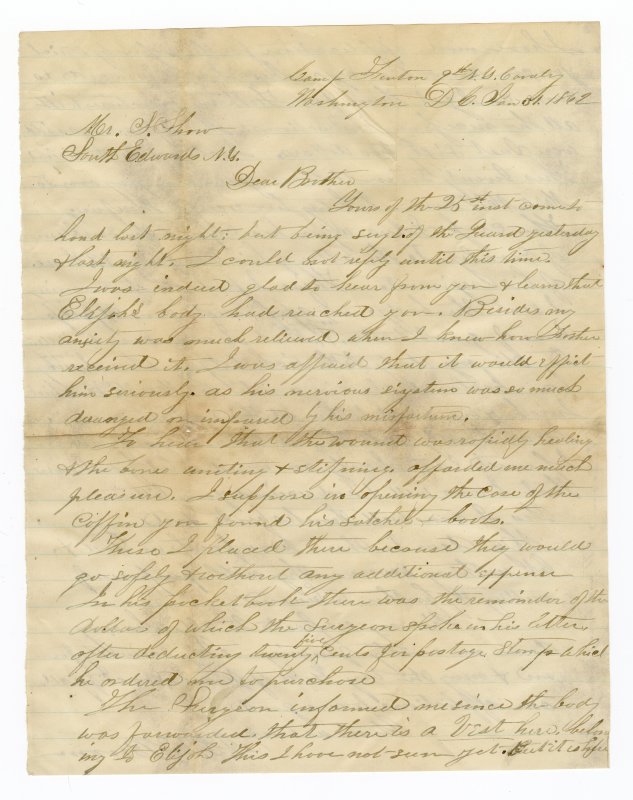 Camp Fenton 9th N.Y. Cavalry
Washington D C. Jan 31. 1862
Mr. S. Show
South Edwards N.Y.
Dear Brother
Yours of the 25th inst come to
hand last night: but being sergt. of the Guard yesterday
& last night. I could not reply until this time.
I was indeed glad to hear from you & learn that
Elijah's body had reached you. Besides my
anxiety was much relieved when I knew how Father
received it. I was affraid that it would effect
him seriously. as his nervious system was so much
deranged or impared by his misfortune.
To hear that the wound was rapidly healing
& the bones uniting & stifning. afforded me much
pleasure. I suppose in opening the case of the
Coffin you found his satchel & boots.
These I placed there because they would
go safely & without any additional expense
In his pocket book there was the remainder of the
dollar of which the Surgeon spoke in his letter,
after deducting twenty five cents for postage stamps which
he ordered me to purchase
The Surgeon informed me since the body
was forwarded. that there is a Vest here. belong
ing to Elijah This I have not seen yet. But it is